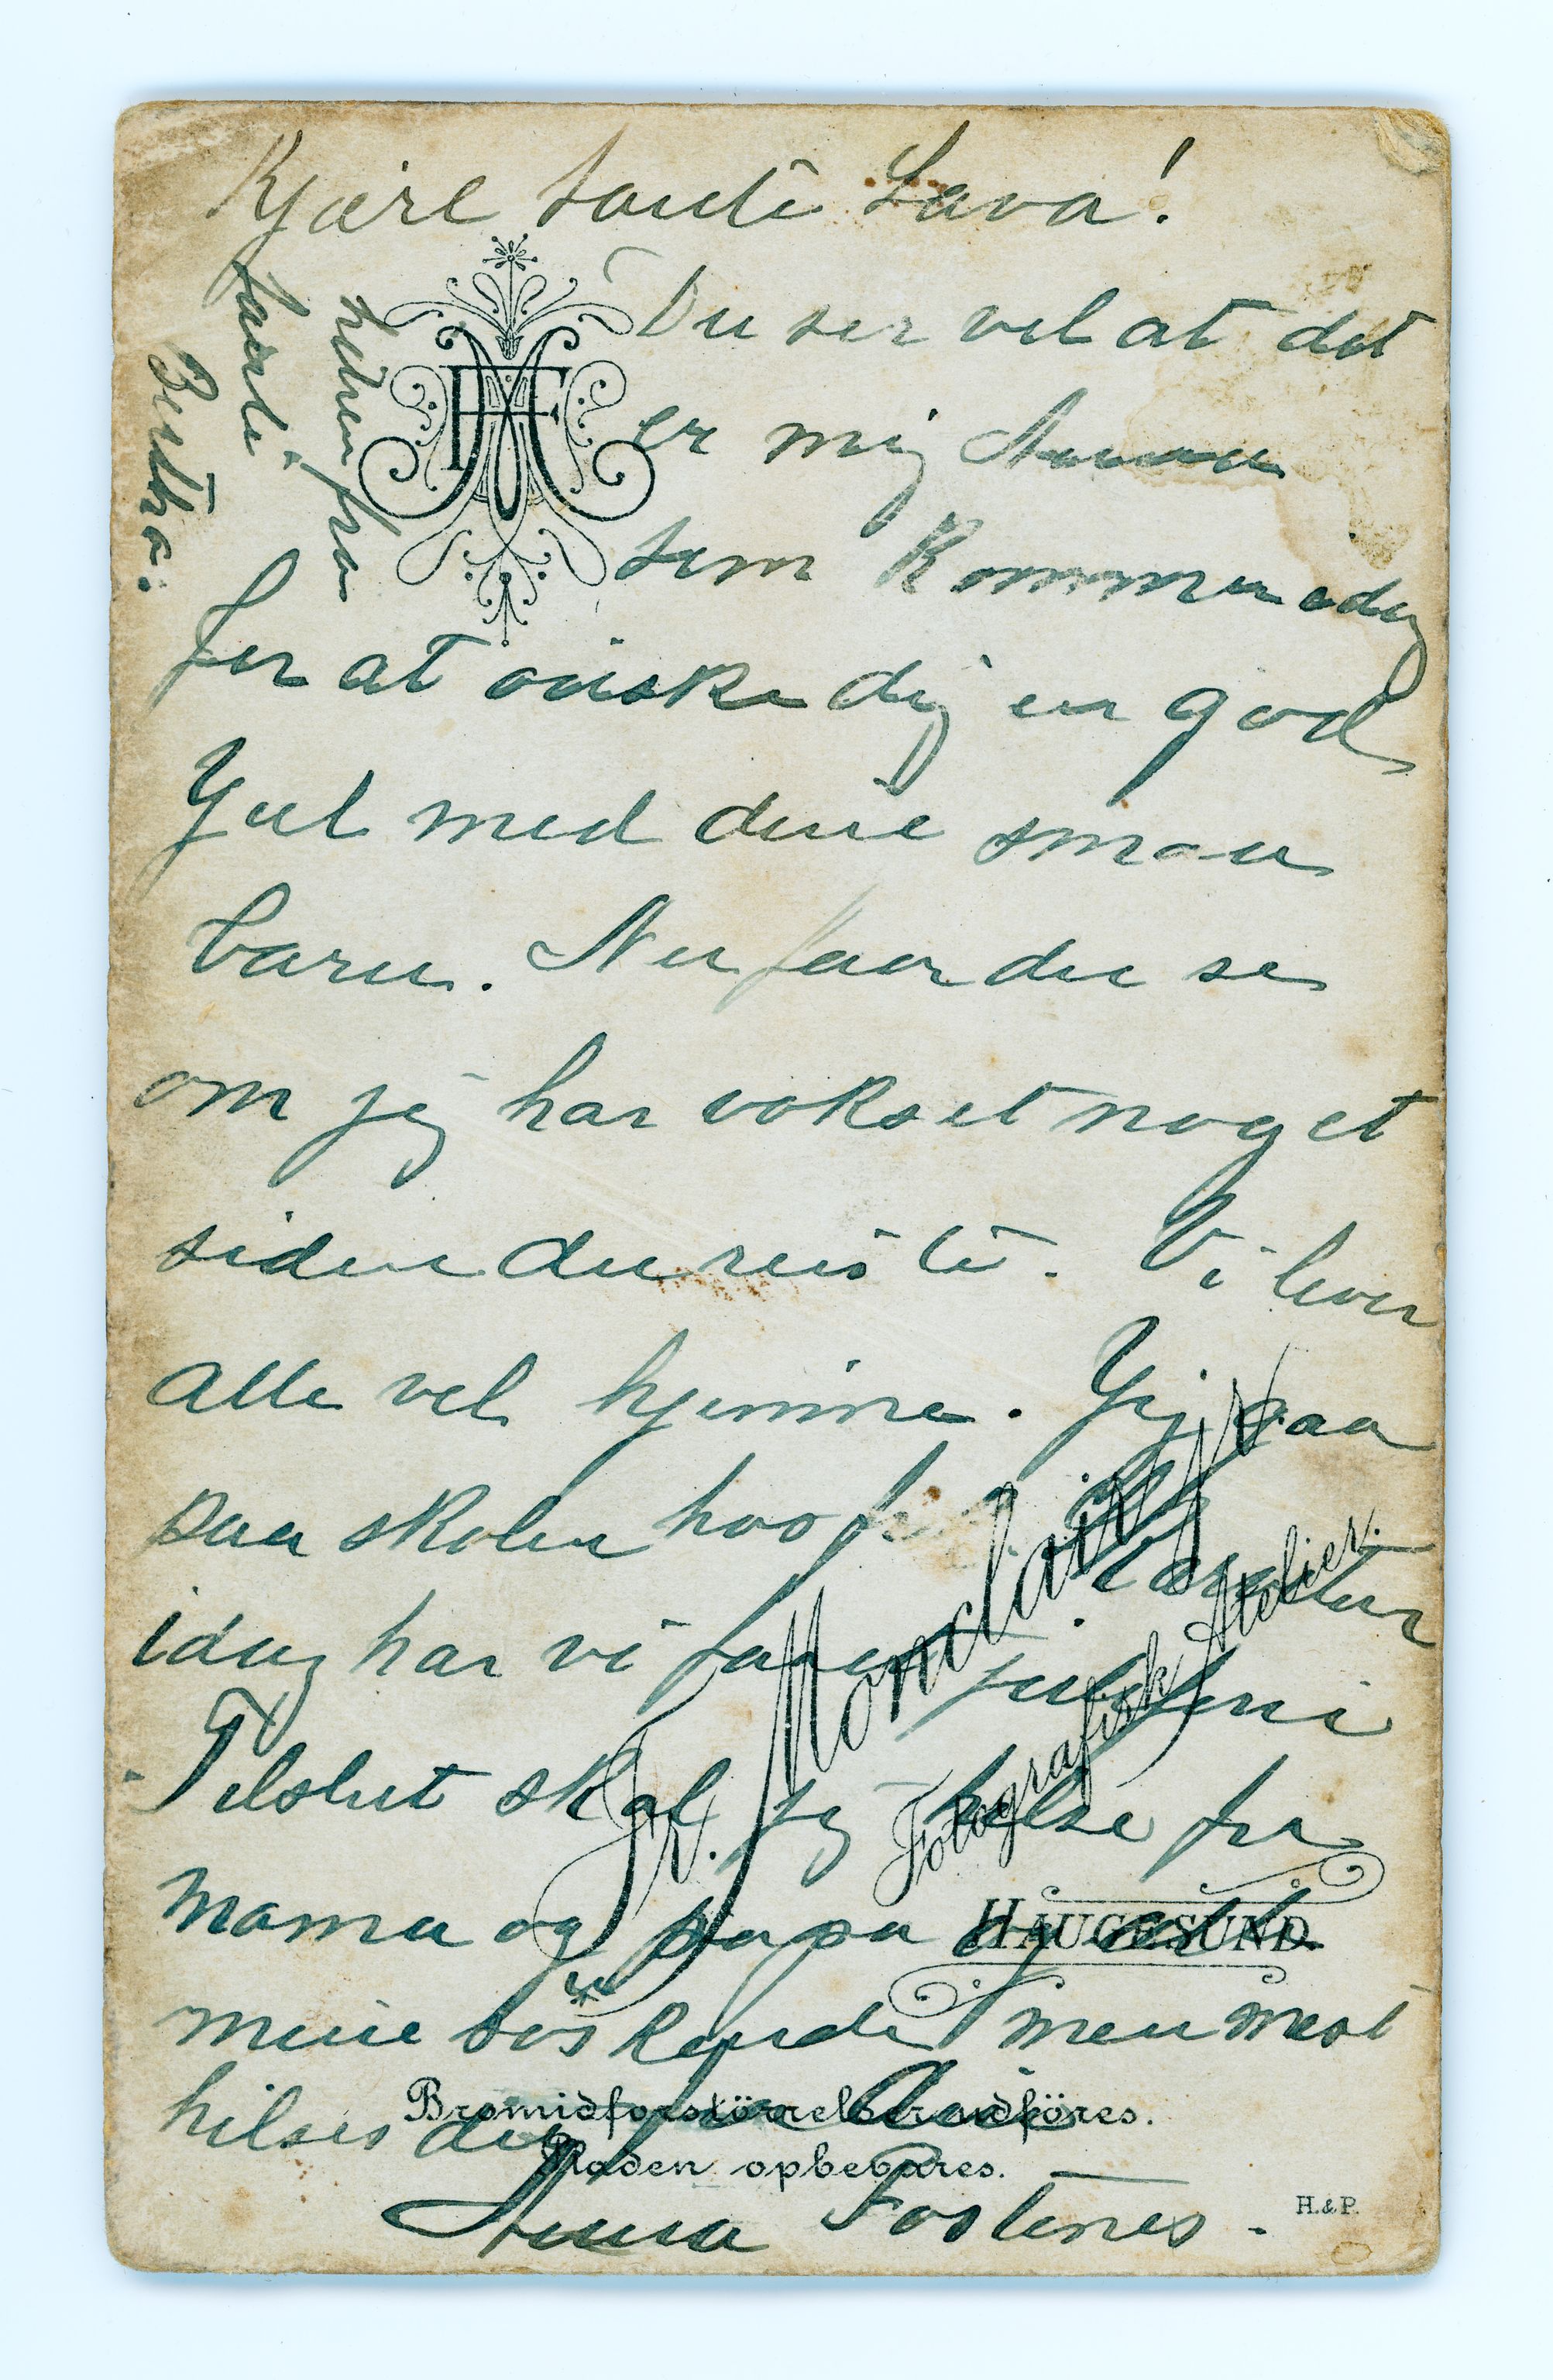 Kjære tante Lava!
Du ser vel at det
er mig Anna
som kommer
for at önske dig en god
Yul med dine smaa
barn. Nu faar du se
om jeg har vokset noget
siden du reiste. Vi lever
alle vel hjemme. Yeg
paa skolen hos
idag har vi faaet juleferie
Tilslut skal jeg hilse fra
mama og papa og alle
mine söskende men mest
hilses du fra
Anna Fostenes.
hilsen fra
tante
Bertha.
Fr. Monclair
Fotografisk Atelier.
HAUGESUND.
Bromidforstörrelser udföres.
Pladen opbevares.
H. & P.